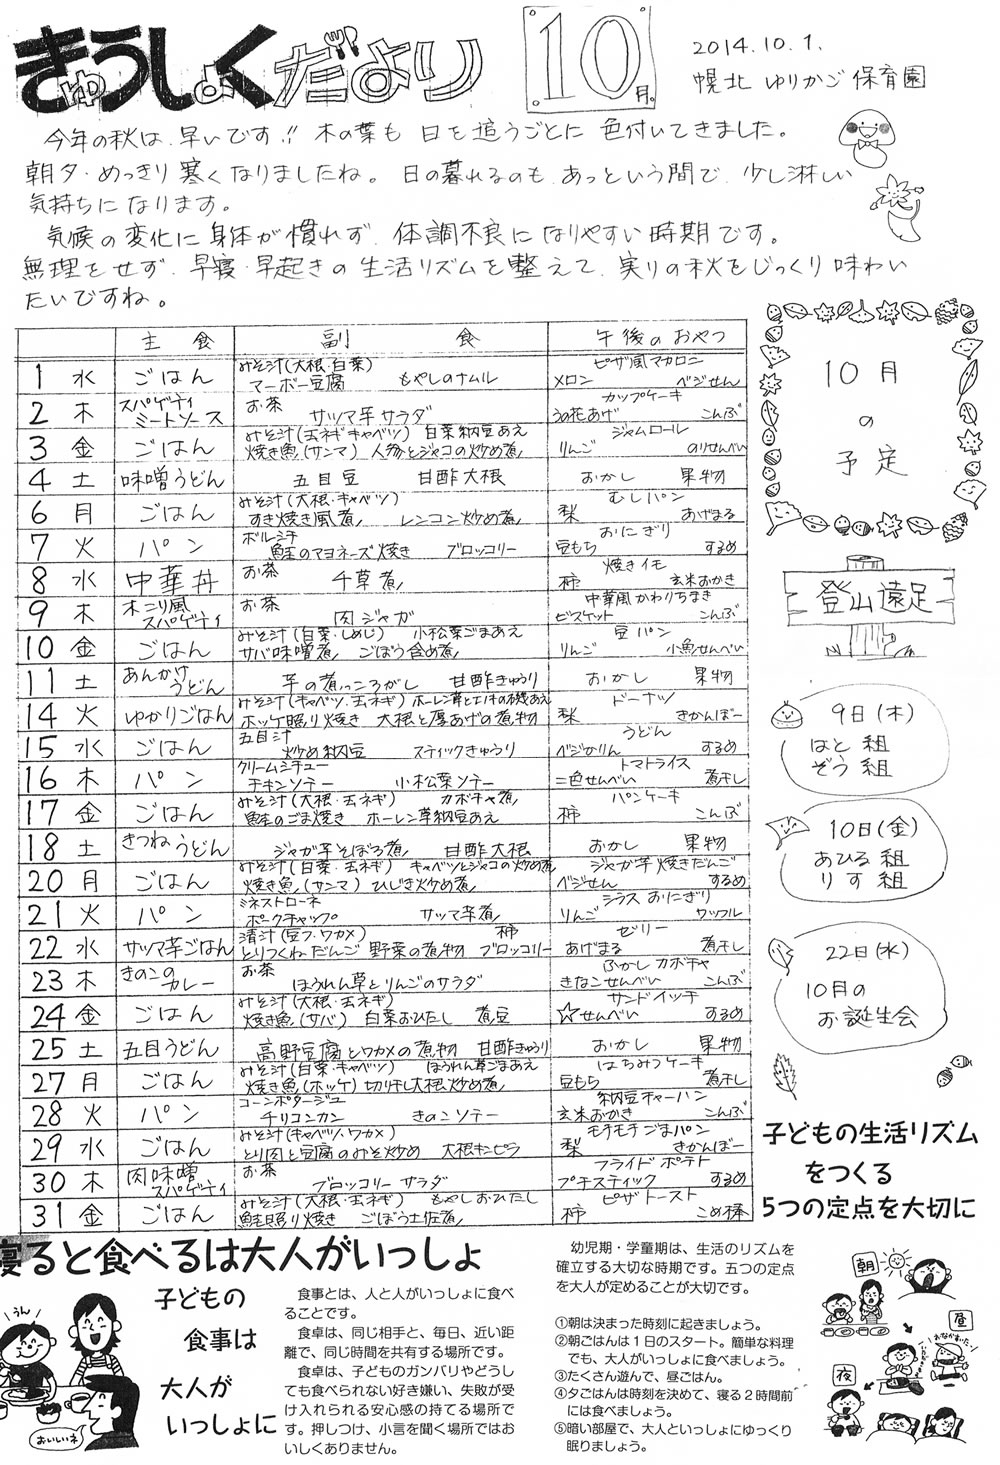 きゅうしょくだより
10月
2014.10.1.
幌北ゆりかご保育園
今年の秋は、早いです!! 木の葉も 日を追うごとに 色付いてきました。
朝夕・めっきり寒くなりましたね。日の暮れるのも、あっという間で、少し淋しい
気持ちになります。
気候の変化に身体が慣れず、体調不良になりやすい時期です。
無理をせず、早寝・早起きの生活リズムを整えて、実りの秋をじっくり味わい
たいですね。
主食 副食 午後のおやつ
1 水 ごはん みそ汁(大根・白菜) マーボー豆腐 もやしのナムル ピザ風マカロニ メロン ベジせん
2 木 スパゲティミートソース お茶 サツマ芋サラダ カップケーキ うの花あげ こんぶ
3 金 ごはん みそ汁(玉ネギキャベツ) 白菜納豆あえ 焼き魚(サンマ) 人参とジャコの炒め煮 ジャムロール りんご のりせんべい
4 土 味噌うどん 五目豆 甘酢大根 おかし 果物
6 月 ごはん みそ汁(大根・キャベツ) すき焼き風煮 レンコン炒め煮 むしパン 梨 あげまる
7 火 パン ボルシチ 鮭のマヨネーズ焼き ブロッコリー おにぎり 豆もち するめ
8 水 中華丼 お茶 千草煮 焼きイモ 柿 玄米おかき
9 木 木こり風スパゲティ お茶 肉ジャガ 中華風かわりちまき ビスケット こんぶ
10 金 ごはん みそ汁(白菜・しめじ) 小松菜ごまあえ サバ味噌煮 ごぼう含め煮 豆パン りんご 小魚せんべい
11 土 あんかけうどん 芋の煮っころがし 甘酢きゅうり おかし 果物
14 火 ゆかりごはん みそ汁(キャベツ・玉ネギ) ホーレン草とエノキの磯あえ ホッケ照り焼き 大根と厚あげの煮物 ドーナツ 梨 きかんぼー
15 水 ごはん 五目汁 炒め納豆 スティックきゅうり うどん ベジかりん するめ
16 木 パン クリームシチュー チキンソテー 小松菜ソテー トマトライス 二色せんべい 煮干し
17 金 ごはん みそ汁(大根・玉ネギ) カボチャ煮 鮭のごま焼き ホーレン草納豆あえ パンケーキ 柿 こんぶ
18 土 きつねうどん ジャガ芋そぼろ煮 甘酢大根 おかし 果物
20 月 ごはん みそ汁(白菜・玉ネギ) キャベツとジャコの炒め煮 焼き魚(サンマ) ひじき炒め煮 ジャガ芋焼きだんご ベジせん するめ
21 火 パン ミネストローネ ポークチャップ サツマ芋煮 シラスおにぎり りんご ワッフル
22 水 サツマ芋ごはん 清汁(豆フ・ワカメ) 柿 とりつくねだんご 野菜の煮物 ブロッコリー ゼリー あげまる 煮干し
23 木 きのこのカレー お茶 ほうれん草とりんごのサラダ ふかしカボチャ きなこせんべい こんぶ
24 金 ごはん みそ汁(大根・玉ネギ) 焼き魚(サバ) 白菜おひたし 煮豆 サンドイッチ ☆せんべい するめ
25 土 五目うどん 高野豆腐とワカメの煮物 甘酢きゅうり おかし 果物
27 月 ごはん みそ汁(白菜・キャベツ) ほうれん草ごまあえ 焼き魚(ホッケ) 切り干し大根炒め煮 はちみつケーキ 豆もち 煮干し
28 火 パン コーンポタージュ チリコンカン きのこソテー 納豆チャーハン 玄米おかき こんぶ
29 水 ごはん みそ汁(キャベツ・ワカメ) とり肉と豆腐のみそ炒め 大根キンピラ モチモチごまパン 梨 きかんぼー
30 木 肉味噌スパゲティ お茶 ブロッコリーサラダ フライドポテト プチスティック するめ
31 金 ごはん みそ汁(大根・玉ネギ) もやしおひたし 鮭照り焼き ごぼう土佐煮 ピザトースト 柿 こめ棒
10月
の
予定
登山遠足
9日(木)
はと組
ぞう組
10日(金)
あひる組
りす組
22日(水)
10月の
お誕生会
子どもの生活リズム
をつくる
5つの定点を大切に
寝ると食べるは大人がいっしょ
うん
おいしいネ
子どもの
食事は
大人が
いっしょに
食事とは、人と人がいっしょに食べ
ることです。
食卓は、同じ相手と、毎日、近い距
離で、同じ時間を共有する場所です。
食卓は、子どものガンバリやどうし
ても食べられない好き嫌い、失敗が受
け入れられる安心感の持てる場所で
す。押しつけ、小言を聞く場所ではお
いしくありません。
幼児期・学童期は、生活のリズムを
確立する大切な時期です。五つの定点
を大人が定めることが大切です。
①朝は決まった時刻に起きましょう。
②朝ごはんは1日のスタート。簡単な料理
でも、大人がいっしょに食べましょう。
③たくさん遊んで、昼ごはん。
④夕ごはんは時刻を決めて、寝る2時間前
には食べましょう。
⑤暗い部屋で、大人といっしょにゆっくり
眠りましょう。
朝
昼
おなかすいた!
夜